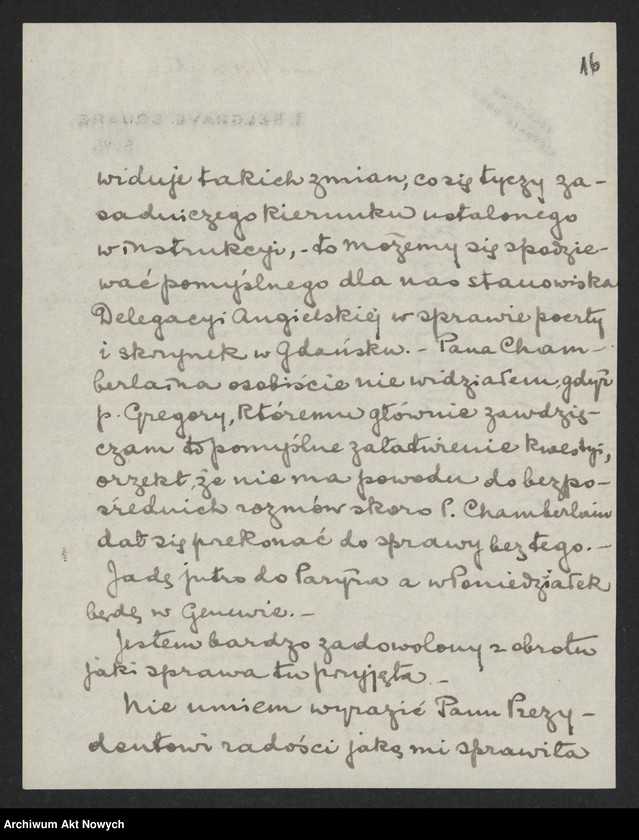 16
widuje takich zmian, co się tyczy za-
sadniczego kierunku ustalonego
w instrukcyi, - to możemy się spodzie-
wać pomyślnego dla nas stanowiska
Delegacyi Angielskiej w sprawie poczty
i skrynek w Gdańsku. - Pana Cham-
berlaina osobiście nie widziałem, gdyż
p. Gregory, któremu głównie zawdzię-
czam to pomyślne załatwienie kwestyi,
orzekł, że nie ma powodu do bezpo-
średnich rozmów skoro P. Chamberlain
dał się prekonać do sprawy bez tego. -
Jadę jutro do Paryża a w Poniedziałek
będę w Genewie. -
Jestem bardzo zadowolony z obrotu
jaki sprawa tu przyjęła. -
Nie umiem wyrazić Panu Prezy-
dentowi radości jaką mi sprawiła
Archiwum Akt Nowych